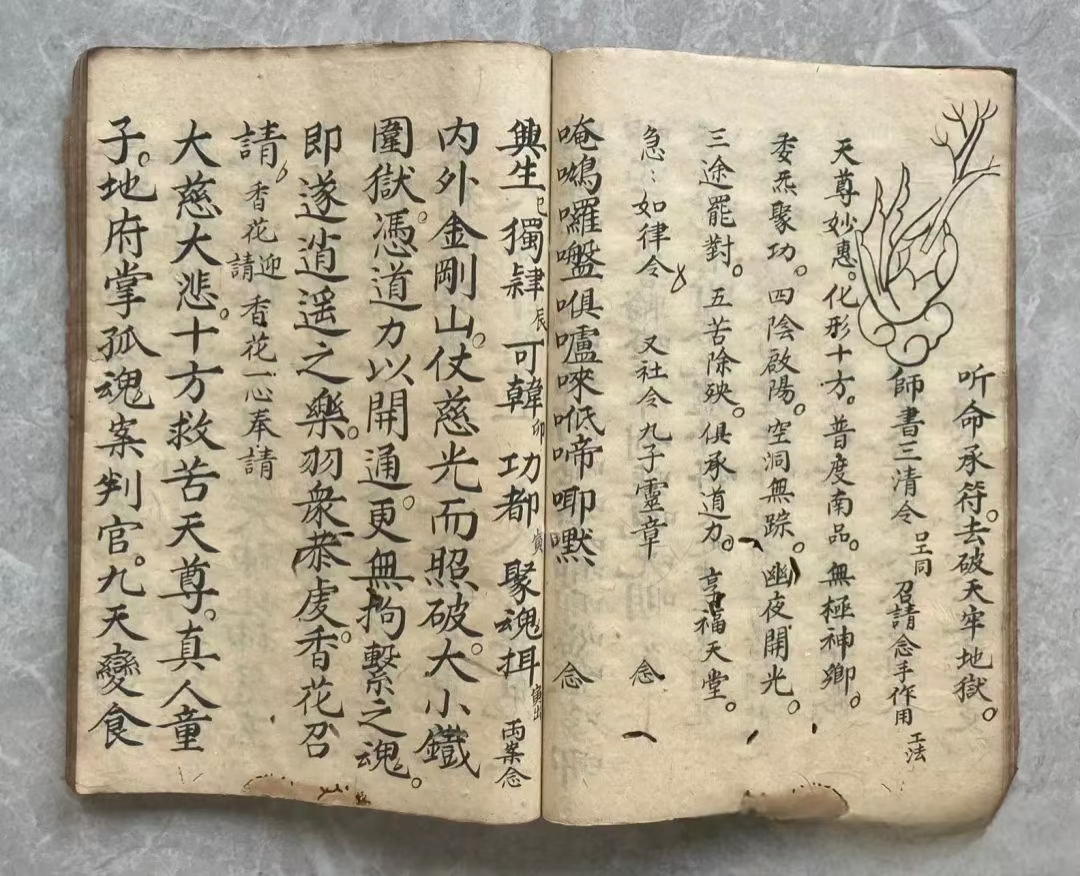 听命承符。去破天牢地獄。
師書三清令 㘴同 召請念手作用 工法
天尊妙惠。化形十方。普度南品。無極神鄉。
委炁聚功。四陰啟陽。空洞無踪。幽夜開光。
三途罷對。五苦除殃。俱承道力。享福天堂。
急：如律令 又社令九子靈章 念
唵 囉 唎 嚧 唻 啼 嘿 念
興生 巳 獨 辰 可韓 卯 功都 寅 聚魂 寅出 両案念
内外金剛山。仗慈光而照破。大小鐵
圍獄。憑道力以開通。更無拘繫之魂。
即遂逍遥之樂。羽衆恭虔。香花召
請 香花迎請 香花一心奉請
大慈大悲。十方救苦天尊。真人童
子。地府掌孤魂案判官。九天變食